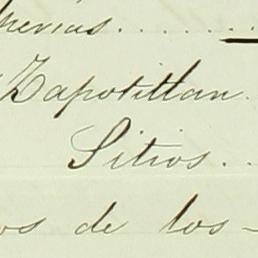 herias......
Zapotitlan.
Sitios..
os de los-